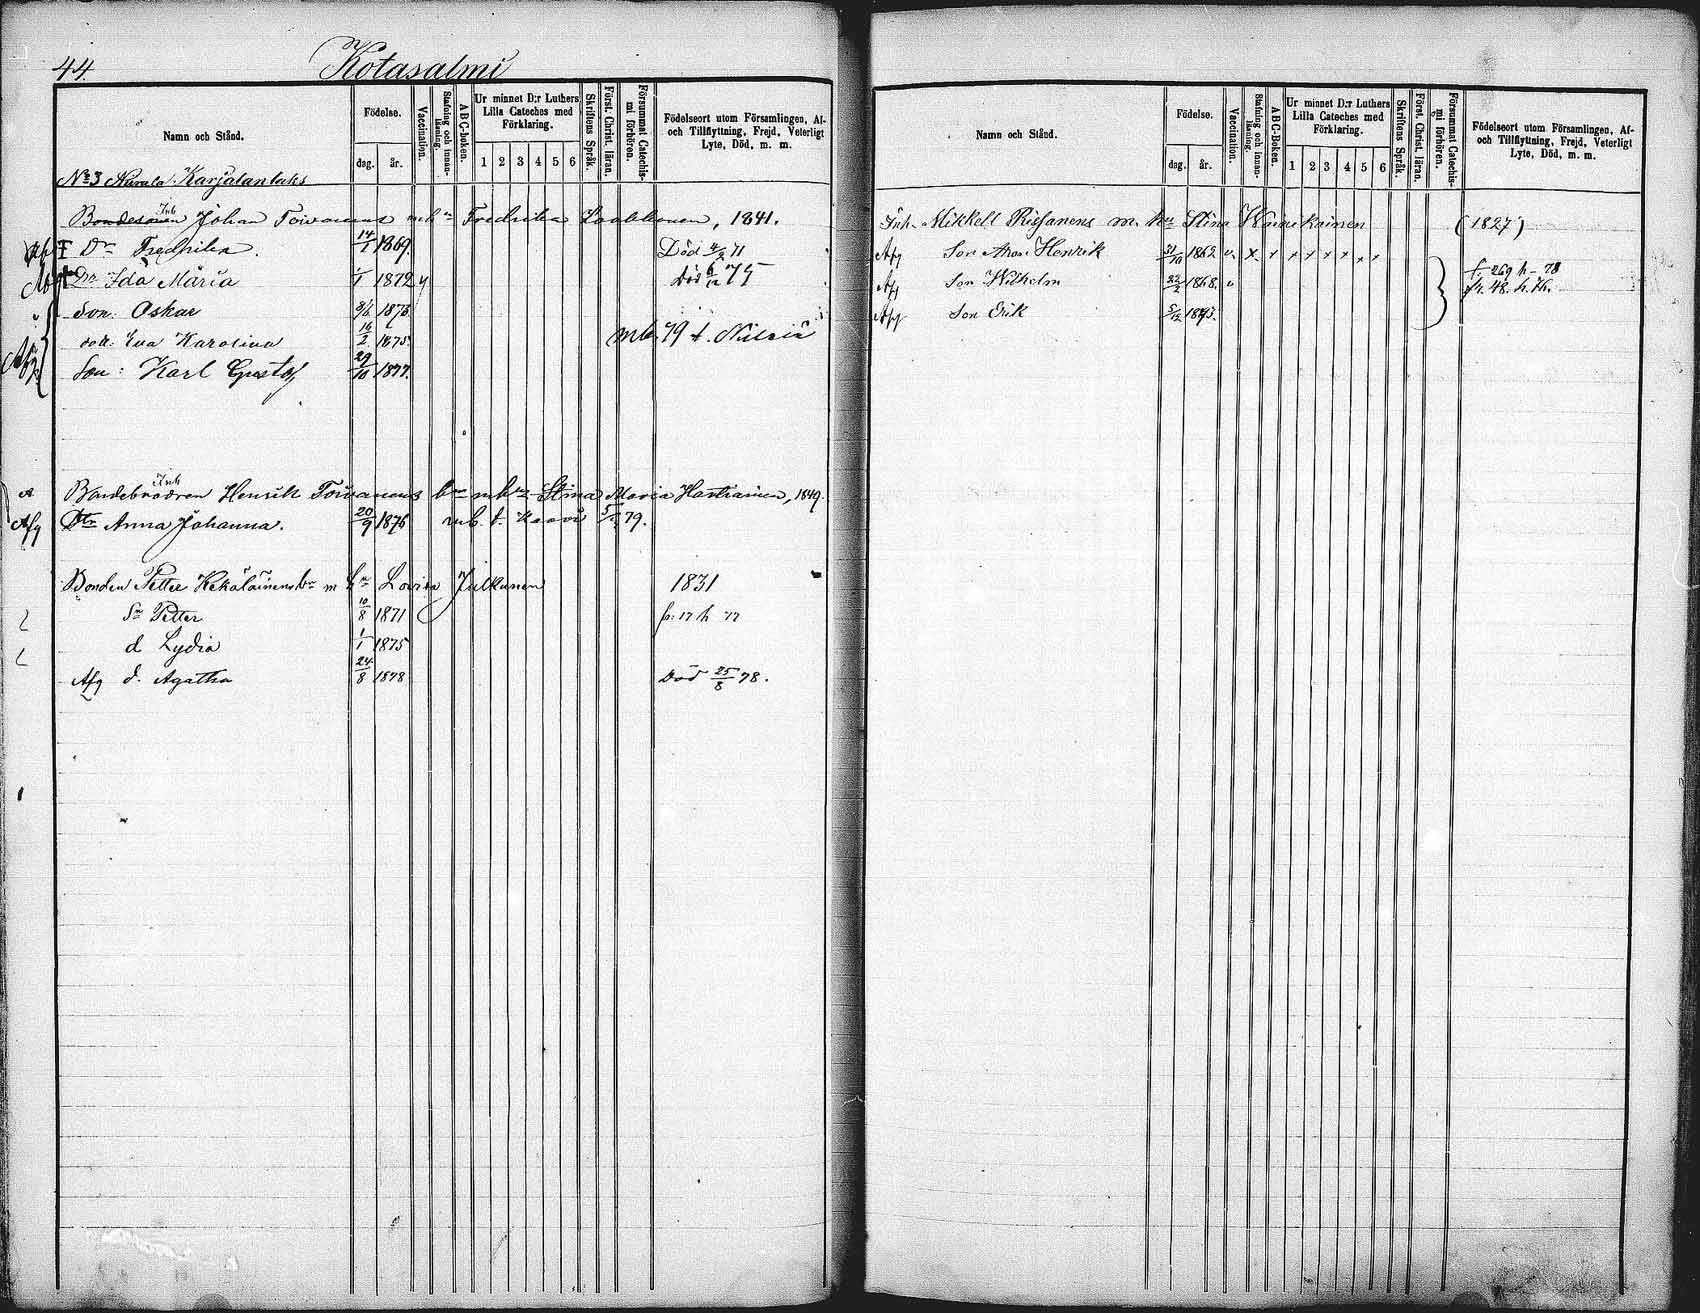 44.
Kotasalmi
Namn och Stånd.
Födelse.
dag. år.
Vaccination.
Stafning och innanläsning.
ABC-boken.
Ur minnet D:r Luthers Lilla Cateches med Förklaring.
1 2 3 4 5 6
Skriftens Språk.
Först. Christ. läran.
Försummat Catechismi förhören.
Födelseort utom Församlingen, Af- och Tillflyttning, Frejd, Veterligt Lyte, Död, m. m.
No 3 Karjalanlaks
Inh
Bondesonen Johan Toivanens m. h. Fredrika Laakkonen, 1841.
Dr Fredrika 14/1 1869. Död 4/2 71
Dr Ida Maria 1/1 1872 Död 6/12 75
Son: Oskar 1873.
dott: Eva Karolina 16/2 1875. mb. 79 t. Nilsiä
Son: Karl Gustaf 29/10 1877.
Inh
Bondebrodren Henrik Toivanens m hu Stina Maria Hartikainen, 1849.
Afg Dtr Anna Johanna. 20/9 1876 mb. t. Kaavi 79.
Bonden Petter Kekäläinens m hu Lovisa Julkunen 1831
Sn Petter 10/8 1871 fr. 17 h 77
d Lydia 1/1 1875
Afg d. Agatha 24/8 1878 Död 25/8 78.
Namn och Stånd.
Födelse.
dag. år.
Vaccination.
Stafning och innanläsning.
ABC-Boken.
Ur minnet D:r Luthers Lilla Cateches med Förklaring.
1 2 3 4 5 6
Skriftens Språk.
Först. Christ. läran.
Försummat Catechismi förhören.
Födelseort utom Församlingen, Af- och Tillflyttning, Frejd, Veterligt Lyte, Död, m. m.
Inh. Mikkell Riesanens m. hu Stina (1827)
Afg Son Henrik 1862. v. x x x x x x x x
Afg Son Wilhelm 22/2 1868. v f. 269 h - 78
fr. 48. h. 76.
Afg Son Erik 5/12